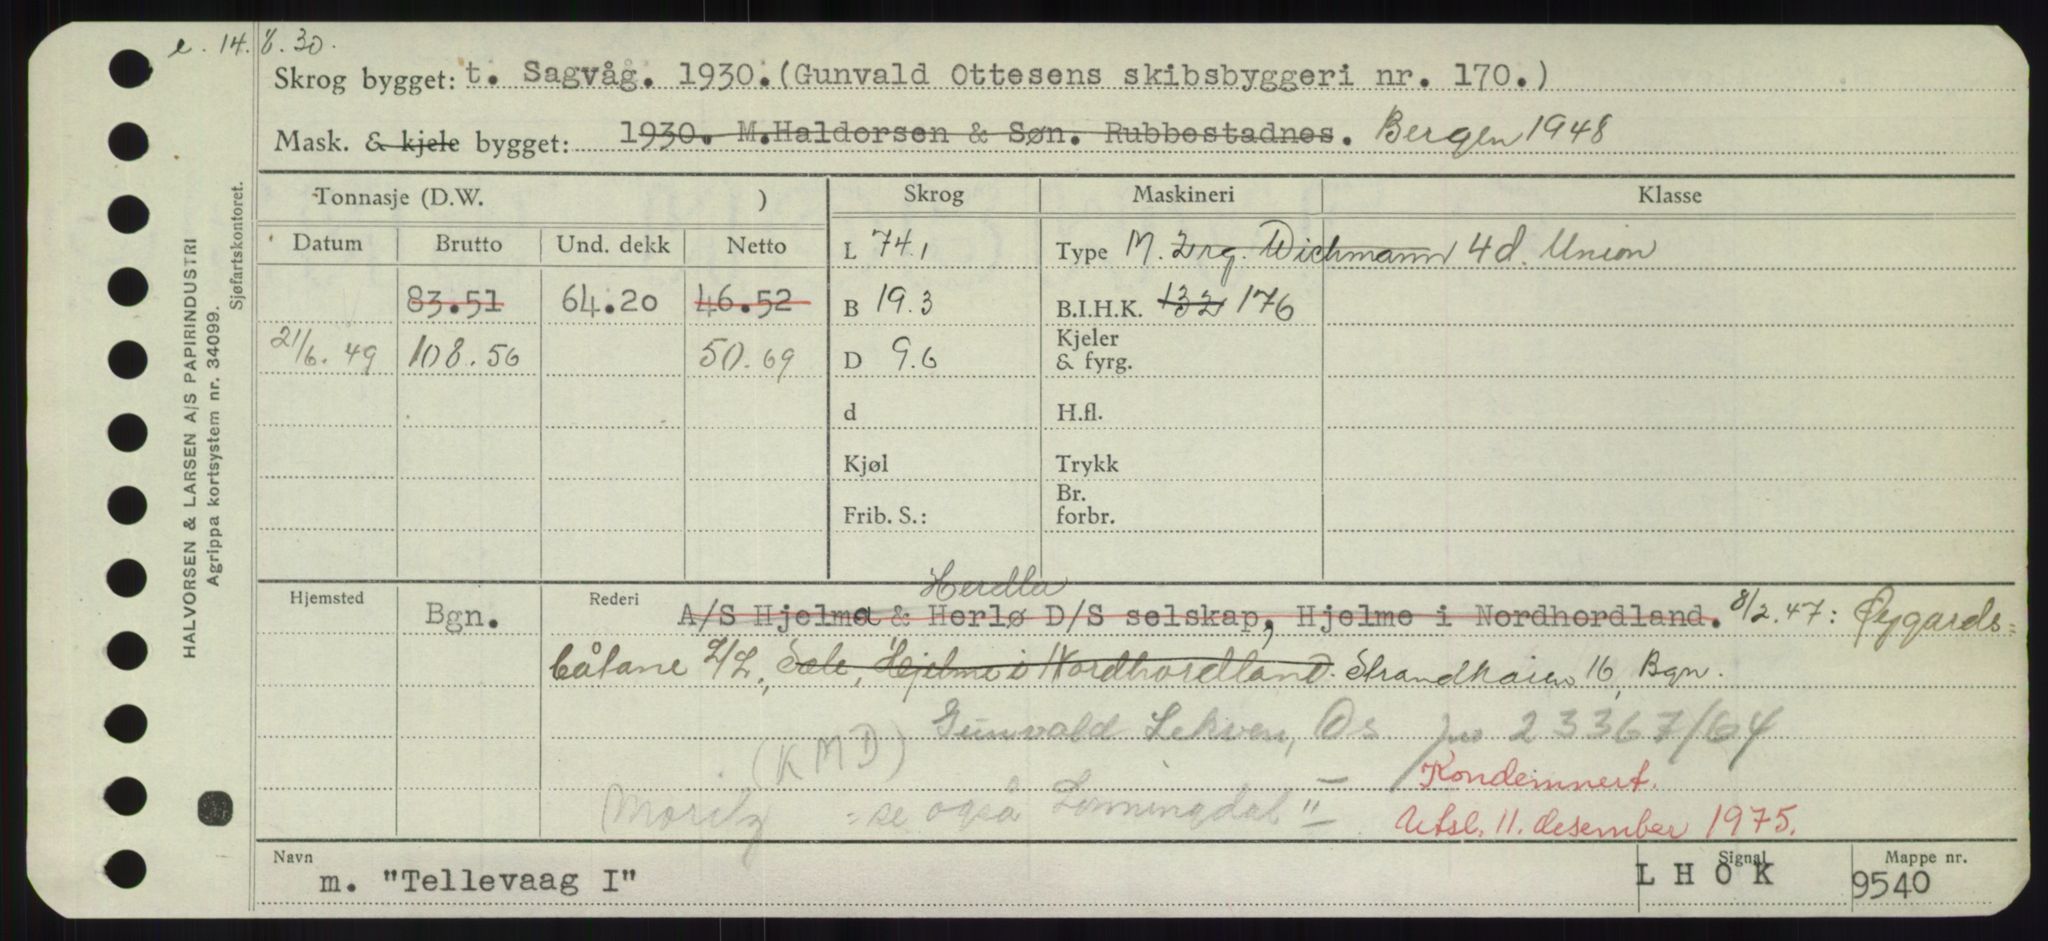 e. 14. 8. 30.
Skrog bygget: t. Sagvåg. 1930. (Gunvald Ottesens skibsbyggeri nr. 170.)
Mask. & kjele bygget: 1930. M.Haldorsen & Søn. Rubbestadnes. Bergen 1948
Tonnasje (D.W. ) Skrog Maskineri Klasse
Datum Brutto Und. dekk Netto L 74.1 Type M. Wichmann 4 d. Union
83.51 64.20 46.52 B 19.3 B.I.H.K. 132 176
21/6. 49 108.56 50.69 D 9.6 Kjeler & fyrg.
d H.fl.
Kjøl Trykk
Frib. S.: Br. forbr.
Herdla
Hjemsted Bgn. Rederi A/S Hjelma & Herlø D/S selskap, Hjelme i Nordhordland. 8/2.47: Øygards=
båtane L/L., Sele, Hjelme i Nordhordland. Strandkaien 16, Bgn.
Gunvald Lekven, Os. 23367/64
(KMD) Kondemnert.
Moritz se også Lønningdal II Utsl. 11. desember 1975.
Navn m. "Tellevaag I" Signal L H O K Mappe nr. 9540
HALVORSEN & LARSEN A/S PAPIRINDUSTRI
Agrippa kortsystem nr. 34099.
Sjøfartskontoret.